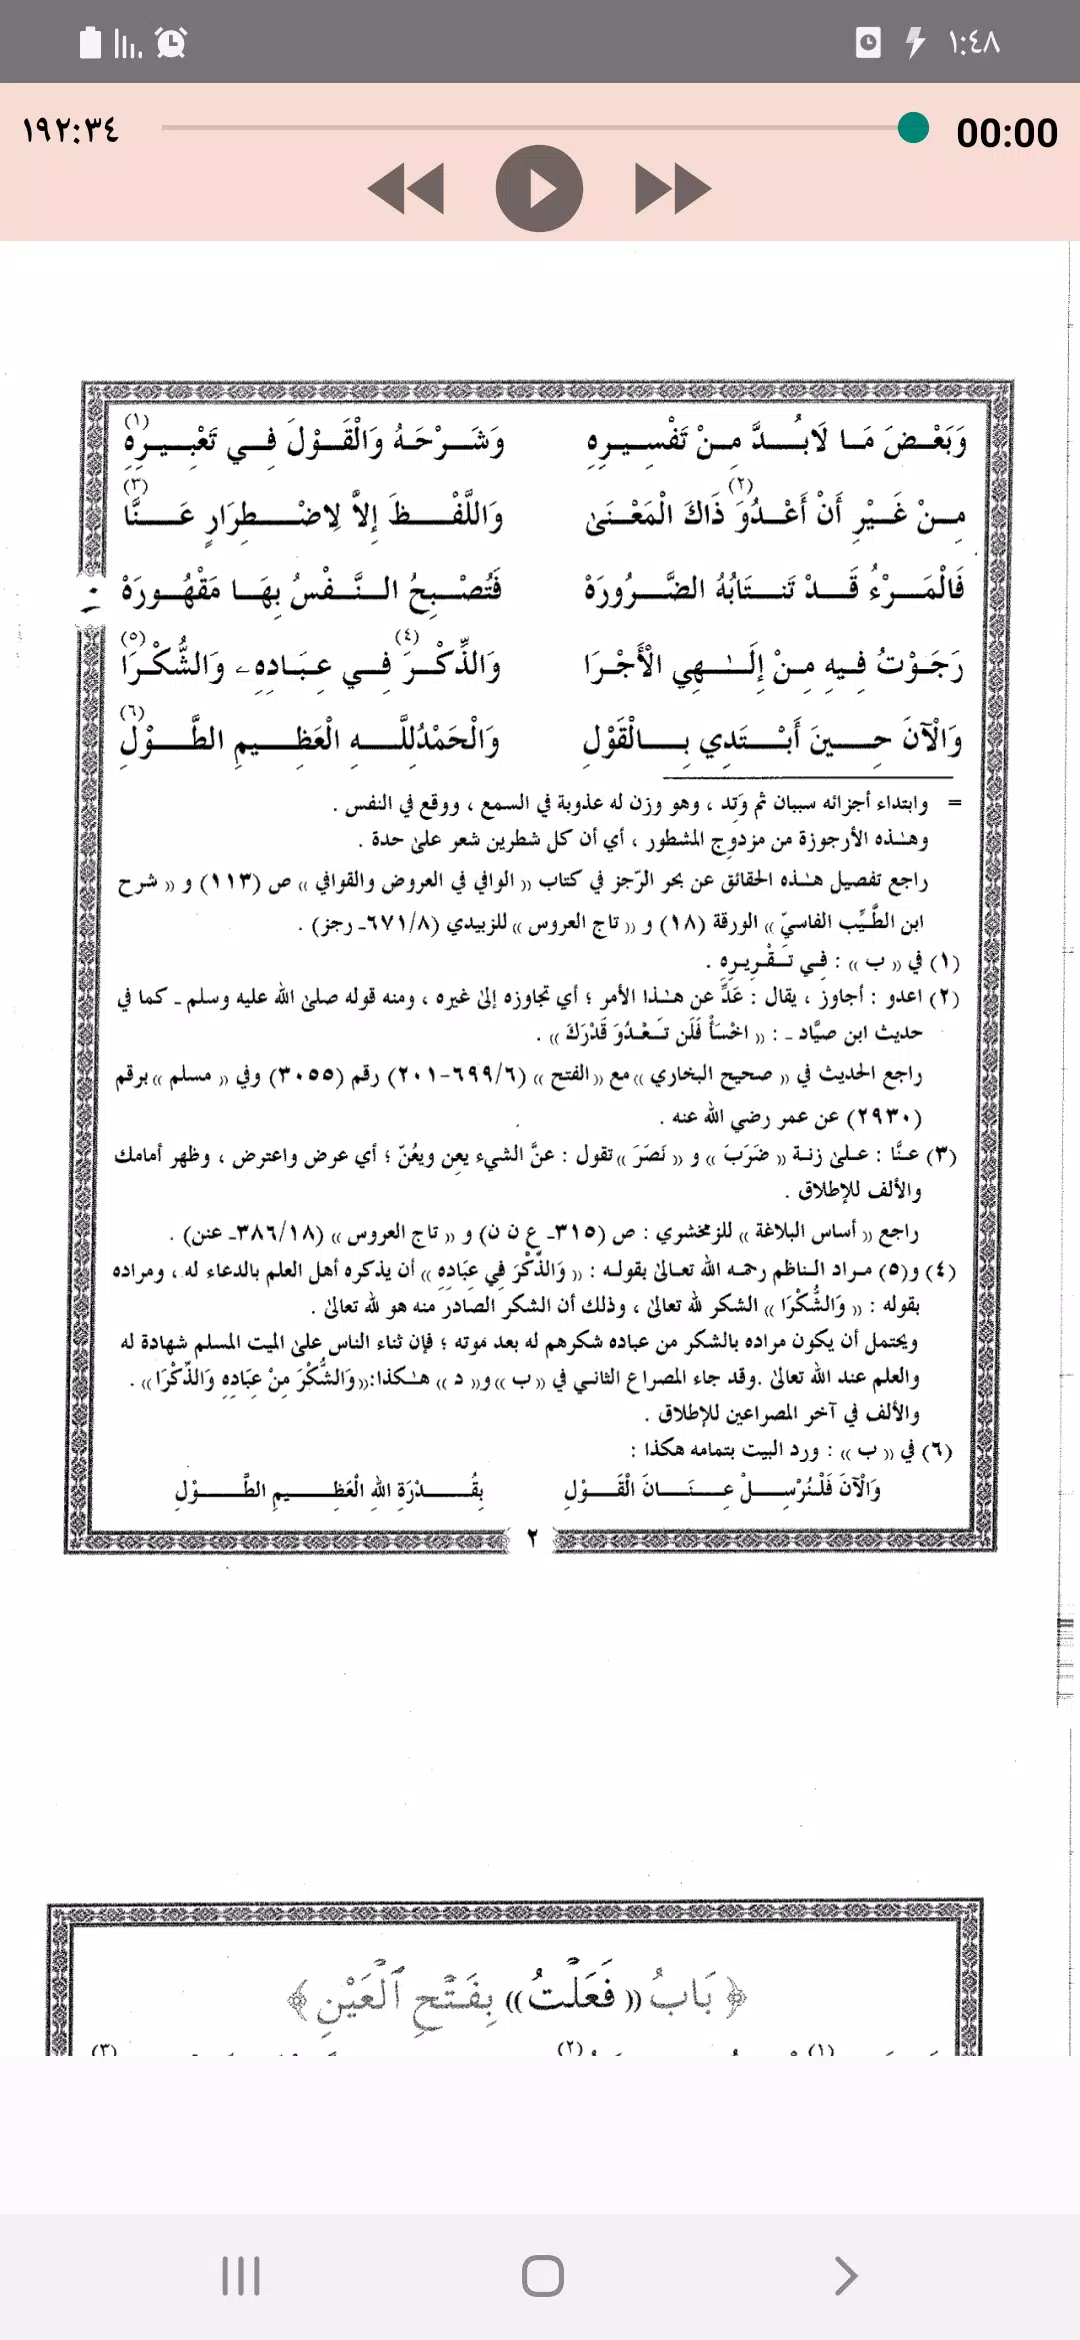 ١:٤٨
١٩٢:٣٤ 00:00
وَبَعْضَ مَا لَابُدَّ مِنْ تَفْسِيرِهِ وَشَرْحَهُ وَالْقَوْلَ فِي تَعْبِيرِهِ (١)
مِنْ غَيْرِ أَنْ أَعْدُوَ (٢) ذَاكَ الْمَعْنَىٰ وَاللَّفْظَ إِلاَّ لِاضْطِرَارٍ عَنَّا (٣)
فَالْمَرْءُ قَدْ تَنتَابُهُ الضَّرُورَهْ فَتُصْبِحُ النَّفْسُ بِهَا مَقْهُورَهْ
١٠
رَجَوْتُ فِيهِ مِنْ إِلَـٰهِي الْأَجْرَا وَالذِّكْرَ (٤) فِي عِبَادِهِۦ وَالشُّكْرَا (٥)
وَالْآنَ حِينَ أَبْتَدِي بِالْقَوْلِ وَالْحَمْدُلِلَّهِ الْعَظِيمِ الطَّوْلِ (٦)
= وابتداء أجزائه سببان ثم وَتِد ، وهو وزن له عذوبة في السمع ، ووقع في النفس .
وهـٰذه الأرجوزة من مزدوِج المشطور ، أي أن كل شطرين شعر علىٰ حدة .
راجع تفصيل هـٰذه الحقائق عن بحر الرّجز في كتاب « الوافي في العروض والقوافي » ص (١١٣) و « شرح
ابن الطَّيِّب الفاسيّ » الورقة (١٨) و « تاج العروس » للزبيدي (٦٧١/٨ـ رجز) .
(١) في « ب » : فِي تَقْرِيرِهِ .
(٢) اعدو : أجاوز ، يقال : عَدِّ عن هـٰذا الأمر ؛ أي تجاوزه إلىٰ غيره ، ومنه قوله صلىٰ الله عليه وسلم ـ كما في
حديث ابن صيَّاد ـ : « اخْسَأْ فَلَن تَعْدُوَ قَدْرَكَ » .
راجع الحديث في « صحيح البخاري » مع « الفتح » (٦٩٩/٦-٢٠١) رقم (٣٠٥٥) وفي « مسلم » برقم
(٢٩٣٠) عن عمر رضي الله عنه .
(٣) عنَّا : علىٰ زنة « ضَرَبَ » و « نَصَرَ » تقول : عنَّ الشيء يعِن ويعُنّ ؛ أي عرض واعترض ، وظهر أمامك
والألف للإطلاق .
راجع « أساس البلاغة » للزمخشري : ص (٣١٥ـ ع ن ن) و « تاج العروس » (٣٨٦/١٨ـ عنن) .
(٤) و(٥) مراد الناظم رحمه الله تعالىٰ بقوله : « وَالذِّكْرَ فِي عِبَادِهِ » أن يذكره أهل العلم بالدعاء له ، ومراده
بقوله : « وَالشُّكْرَا » الشكر لله تعالىٰ ، وذلك أن الشكر الصادر منه هو لله تعالىٰ .
ويحتمل أن يكون مراده بالشكر من عباده شكرهم له بعد موته ؛ فإن ثناء الناس علىٰ الميت المسلم شهادة له
والعلم عند الله تعالىٰ . وقد جاء المصراع الثاني في « ب » و« د » هـٰكذا:« وَالشُّكْرَ مِنْ عِبَادِهِ وَالذِّكْرَا » .
والألف في آخر المصراعين للإطلاق .
(٦) في « ب » : ورد البيت بتمامه هكذا :
وَالْآنَ فَلْنُرْسِلْ عِنَانَ الْقَوْلِ بِقُدْرَةِ اللهِ الْعَظِيمِ الطَّوْلِ
٢
﴿ بَابُ « فَعَلْتُ » بِفَتْحِ الْعَيْنِ ﴾
(١) (٢) (٣)